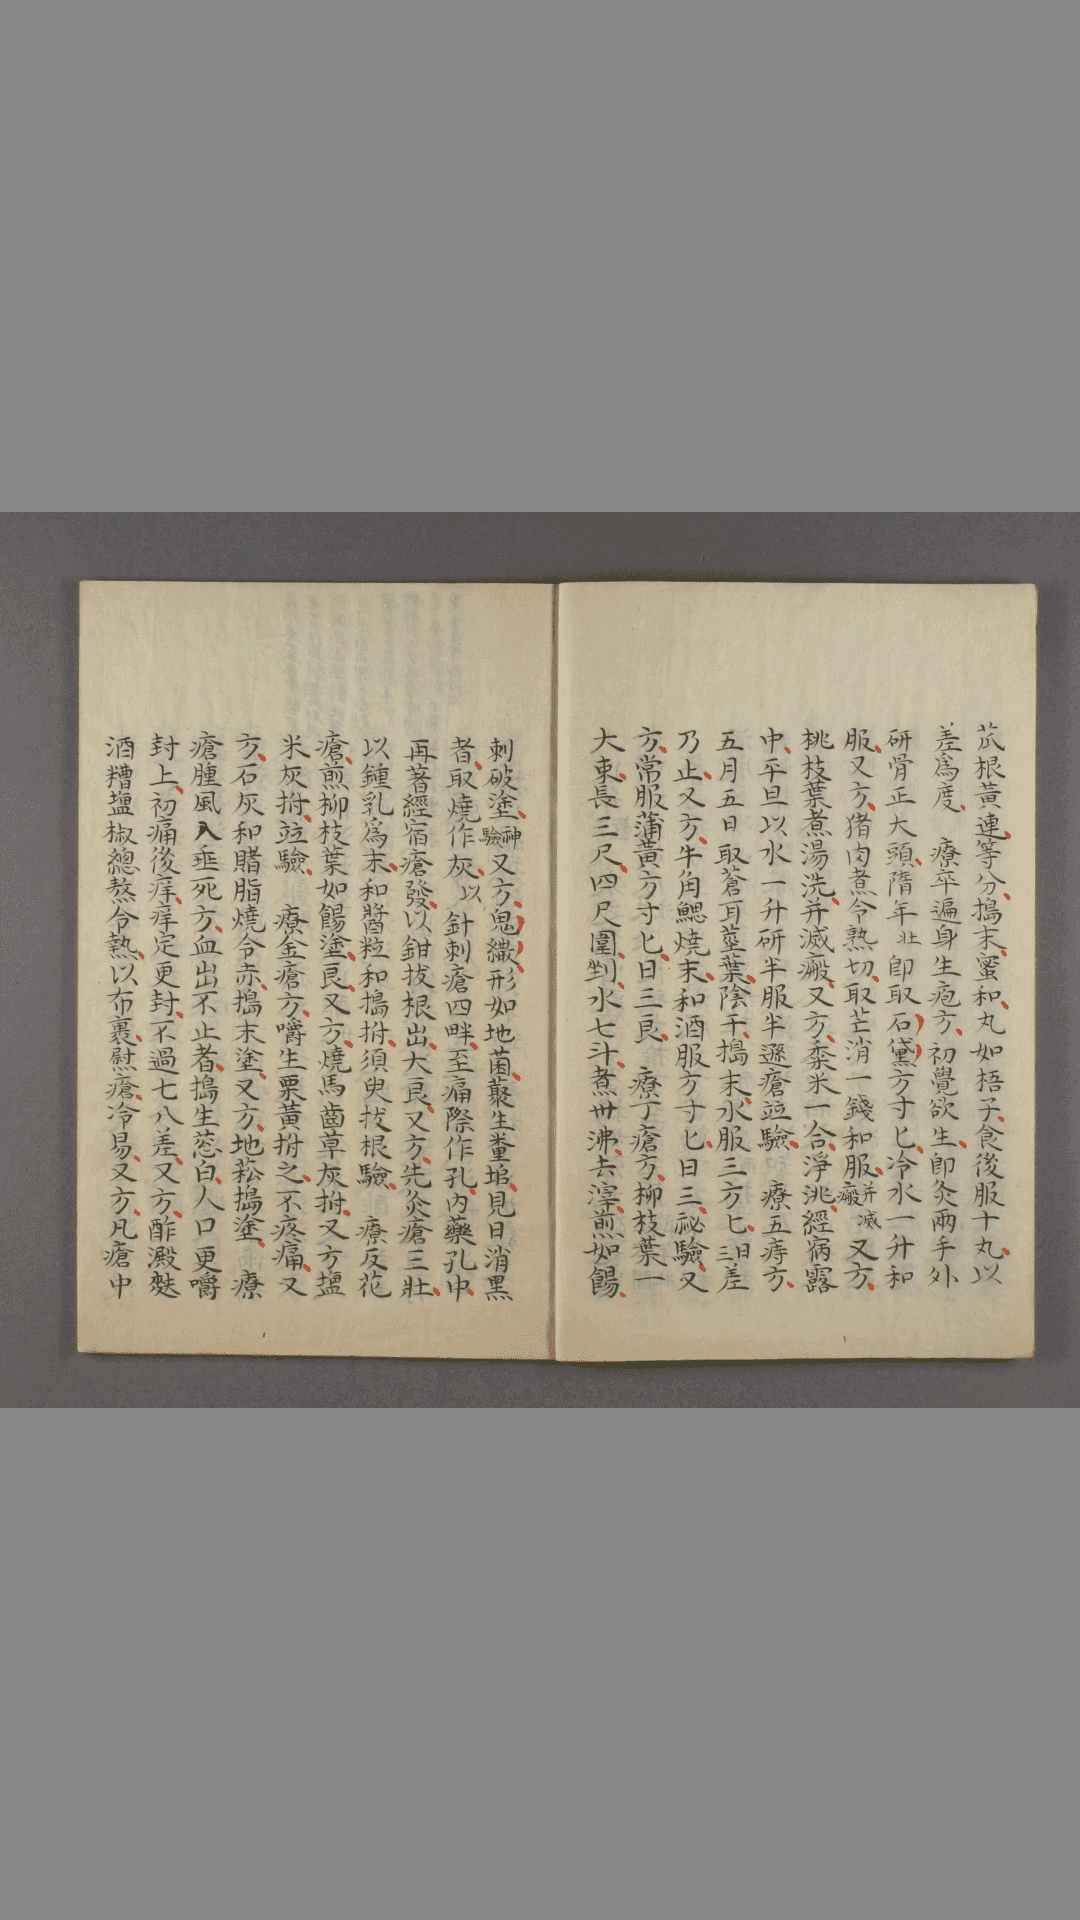 苽根黃連等分搗末蜜和丸如梧子食後服十丸以
差爲度　療卒遍身生疱方初覺欲生卽灸兩手外
研骨正大頭隋年壮卽取石黛方寸匕冷水一升和
服又方猪肉煮令熟切取芒消一錢和服并滅瘢又方
桃枝葉煮湯洗并滅瘢又方黍米一合淨洮經宿露
中平旦以水一升研半服半遜瘡竝驗　療五痔方
五月五日取蒼耳莖葉陰干搗末水服三方匕三日差
乃止又方牛角䚡燒末和酒服方寸匕日三祕驗又
方常服蒲黃方寸匕日三良　療丁瘡方柳枝葉一
大束長三尺四尺圍剉水七斗煮卅沸去滓煎如餳
刺破塗神驗又方鬼繖形如地菌藂生葷垖見日消黑
者取燒作灰以針刺瘡四畔至痛際作孔內藥孔中
再著經宿瘡發以鉗拔根出大良又方先灸瘡三壯
以鍾乳爲末和醬粒和搗拊須臾拔根驗　療反花
瘡煎柳枝葉如餳塗良又方燒馬齒草灰拊又方塩
米灰拊竝驗　療金瘡方嚼生栗黃拊之不疼痛又
方石灰和賭脂燒令赤搗末塗又方地菘搗塗　療
瘡腫風入垂死方血出不止者搗生葱白人口更嚼
封上初痛後痒痒定更封不過七八差又方酢澱麩
酒糟塩椒總熬令熱以布裹慰瘡冷易又方凡瘡中